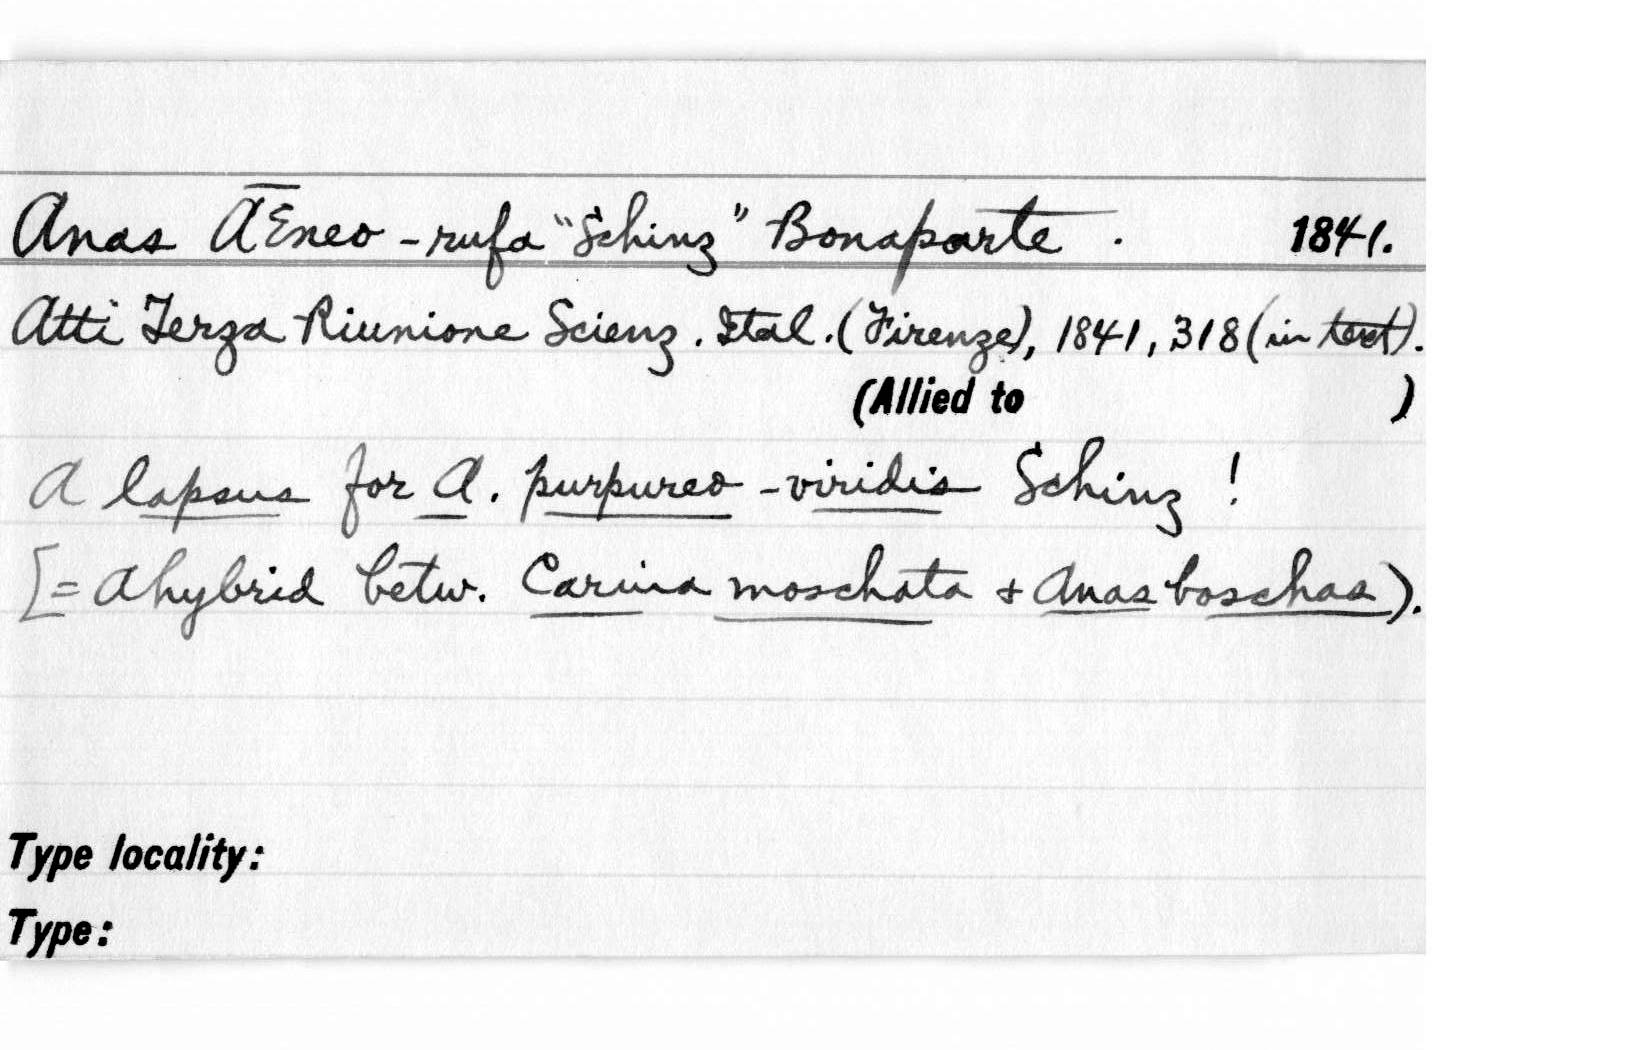 Anas AEneo-rufa "Schinz" Bonaparte. 1841.
Atti Terza Riunione Scienz. Ital. (Firenze), 1841, 318 (in text).
(Allied to )
A lapsus for A. purpureo-viridis Schinz!
[= A hybrid betw. Carina moschata + Anas boschas).
Type locality:
Type: